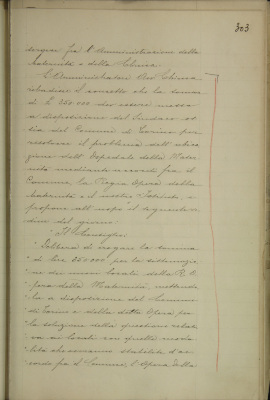 303
fra l'Amministrazione della
Maternità e della Clinica.
L'Amministratore
il concetto che la somma
di L. 350.000 dev'essere messa
a disposizione del Sindaco os
sia del Comune di Torino per
risolvere il problema dell'ubica
zione dell'Ospedale della Mater
nità mediante accordi fra il
Comune, la Regia Opera della
Maternità e il nostro Istituto, e
propone all'uopo il seguente or
dine del giorno:
"Il Consiglio
"Delibera di erogare la somma
di lire 350.000 per la costruzio
ne dei nuovi locali della R. O
pera della Maternità, metten
la a disposizione del Comune
di Torino e della detta Opera per
la soluzione della questione relati
va ai locali con quelle moda
lità che saranno stabilite d'ac
cordo fra il Comune, l'Opera della